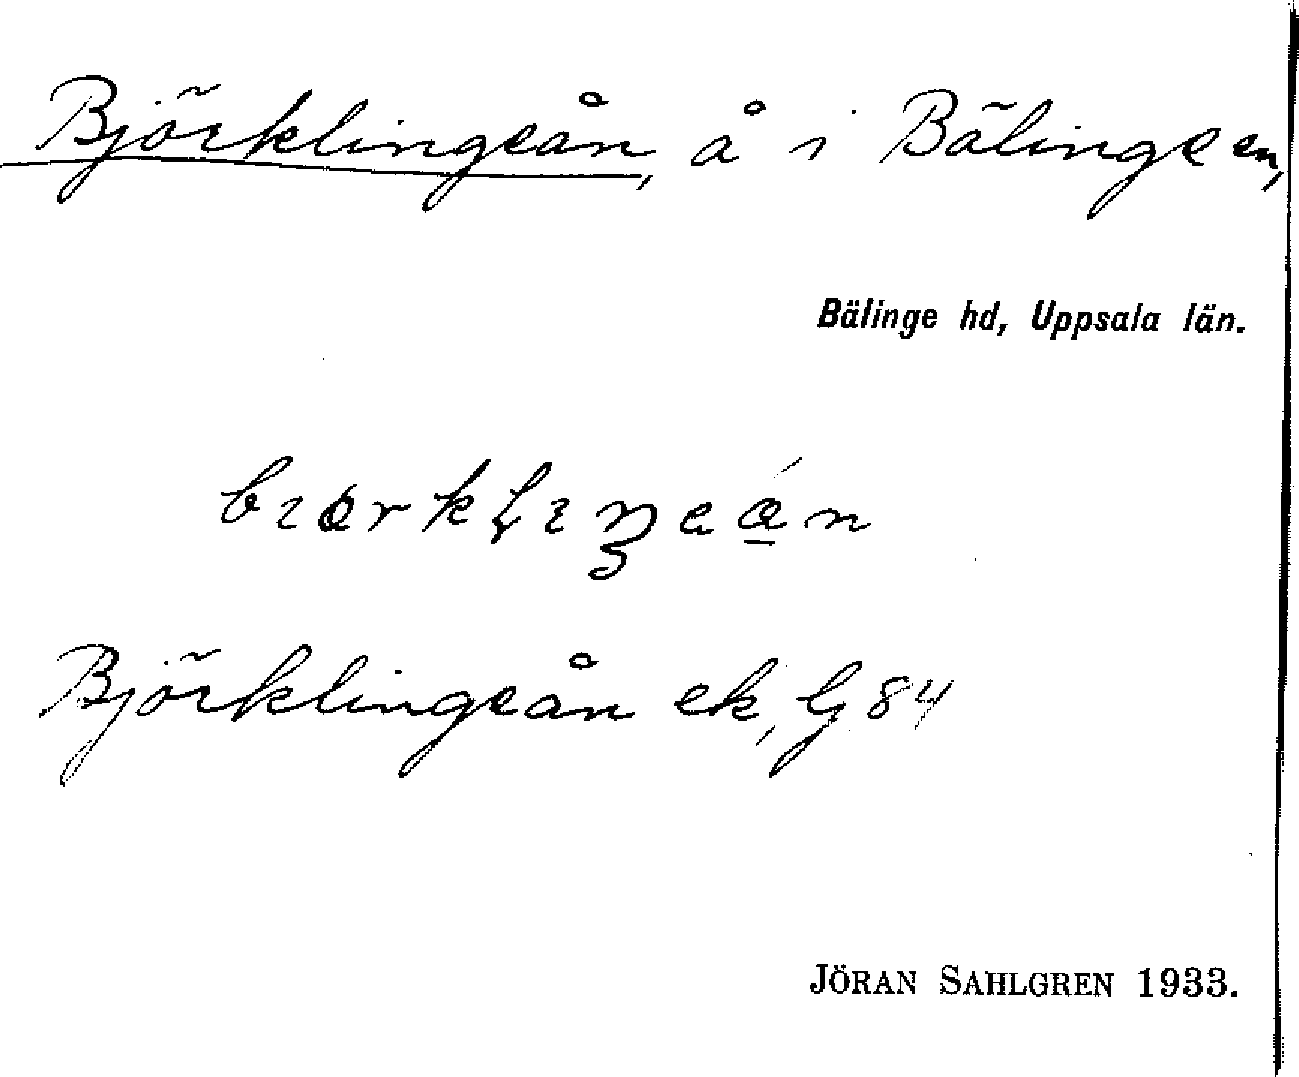 Björklingeån, å i Bälinge sn,
Bälinge hd, Uppsala län.
Björklingeån ek, G 84
JÖRAN SAHLGREN 1933.